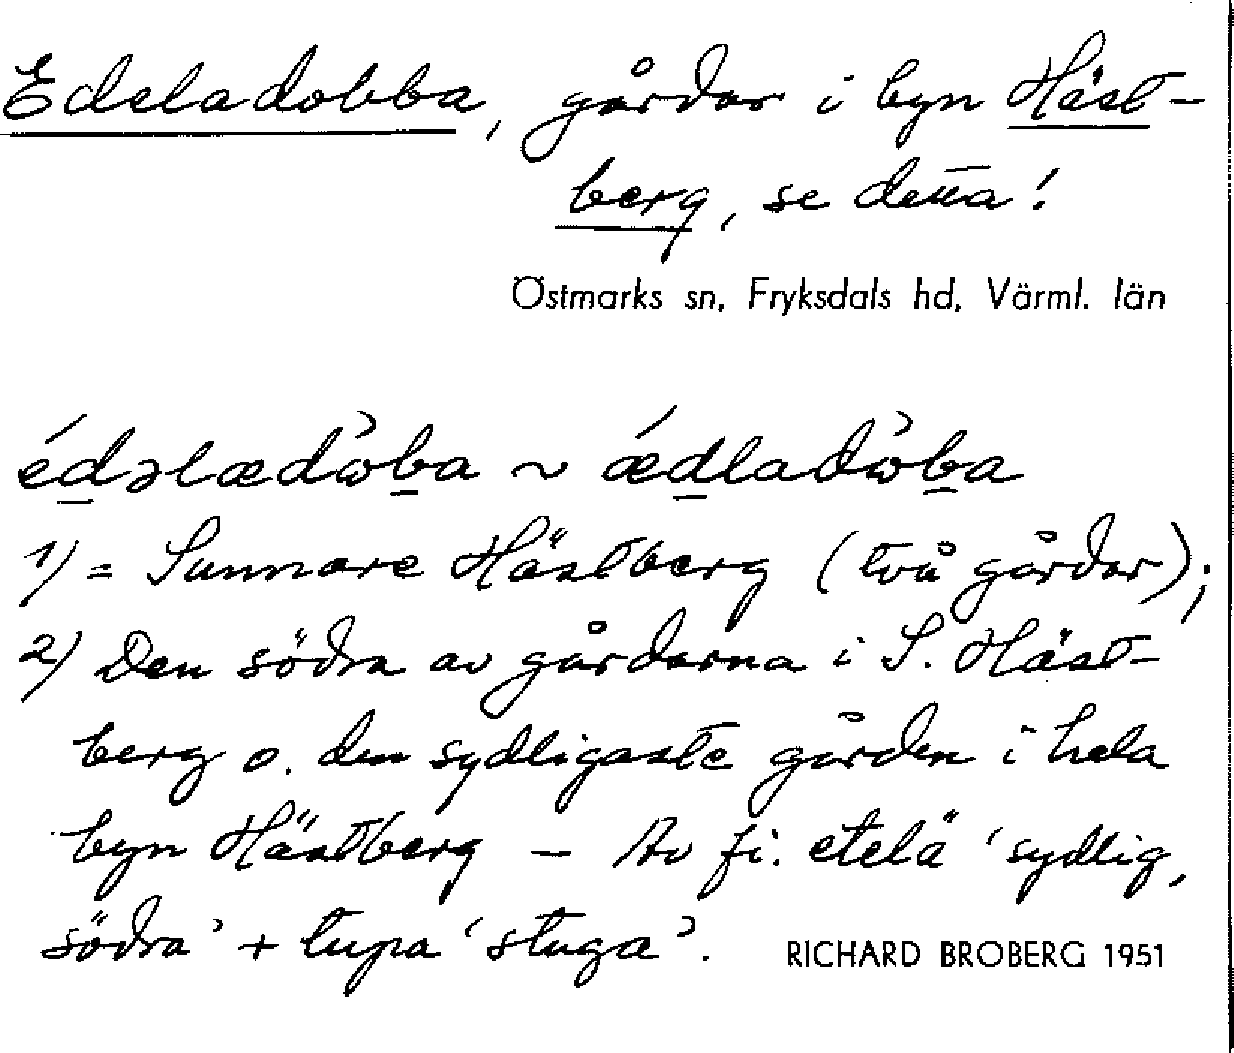 Edeladobba, gårdar i byn Häst-
berg, se detta!
Östmarks sn, Fryksdals hd, Värml. län
édəlædὼba ~ ǽdladὼba
1) = Sunnare Hästberg (två gårdar);
2) Den södra av gårdarna i S. Häst-
berg o. den sydligaste gården i hela
byn Hästberg – Av fi. etelä 'sydlig,
södra' + tupa 'stuga'.
RICHARD BROBERG 1951